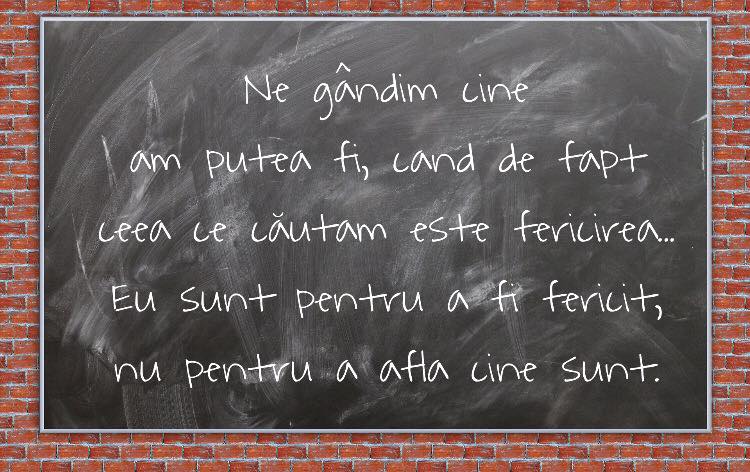 Ne gândim cine
am putea fi, cand de fapt
ceea ce căutam este fericirea...
Eu sunt pentru a fi fericit,
nu pentru a afla cine sunt.